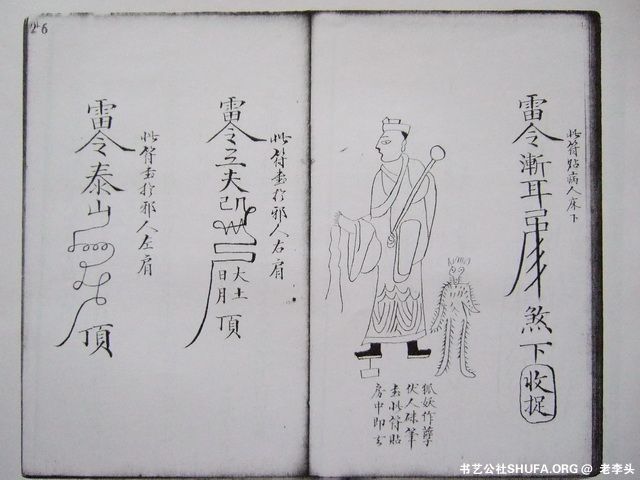 此符貼病人床下
雷令漸耳煞下收捉
狐妖作孽
伏人硃筆
畫此符貼
房中即去
此符畫於邪人右肩
雷令夫大土日月頂
此符畫於邪人左肩
雷令泰山頂
26
书艺公社SHUFA.ORG @ 老李头